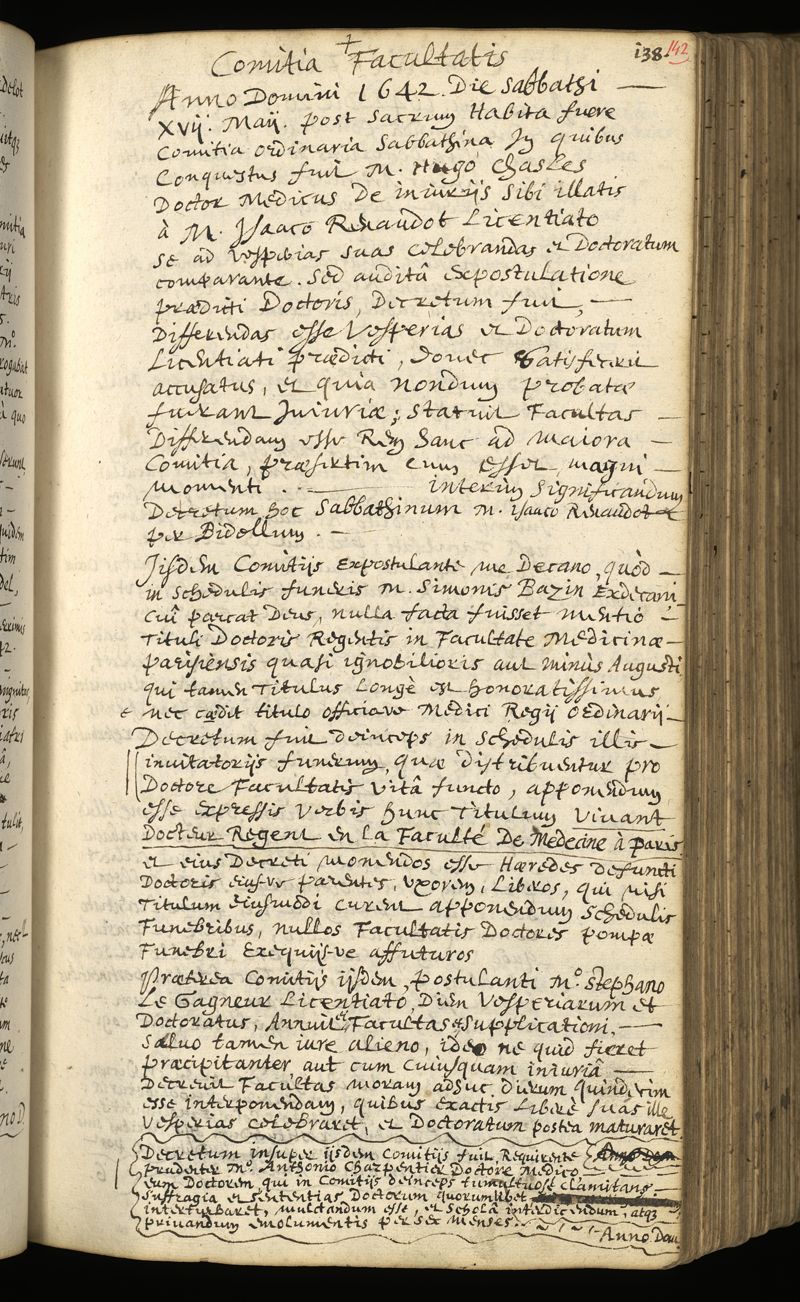 138. 142
Comitia Facultatis
Anno Domini 1642. Die Sabbathi —
XVij. Maij. post Sacrum Habita fuere
Comitia ordinaria Sabbathina In quibus
Conquestus fuit M. Hugo Chasles
Doctor Medicus De iniurijs sibi illatis
à M. Isaaco Renaudot Licentiato
se ad vesperias suas celebrandas et Doctoratum
comparante. Sed auditâ expostulatione
prædicti Doctoris, Decretum fuit, —
Differendas esse Vesperias et Doctoratum
Licentiati prædicti, donec satisfecerit
accusatus, et quia nondum probatæ
fuerant Iniuriæ; statuit Facultas —
Differendam esse Rem hanc ad maiora —
Comitia, præsertim cum esset magni —
momenti . . — interim significandum
Decretum hoc Sabbathinum M. isaaco Renaudot
per Bidellum. —
Iisdem Comitijs expostulante me Decano, quòd —
in schedulis funeris M. Simonis Bazin Exdecani
cui parcat Deus, nulla facta fuisset mentio —
Tituli Doctoris Regentis in Facultate Medicinæ —
parisiensis quasi ignobilioris aut minùs Augusti,
qui tamen Titulus Longè est honoratissimus
nec cædit titulo officiove Medici Regij ordinarij —
Decretum fuit deinceps in schedulis illis —
inuitatorijs funerum, quæ distribuentur pro
Doctore Facultatis vitâ functo, apponendum
esse expressis verbis hunc Titulum Viuant
Docteur Regent en la Faculté De Medecine à paris
et eius Decreti monendos esse Hæredes defuncti
Doctoris eiusve parentes, vxorem, Liberos, qui nisi
Titulum eiusmodi curent apponendum schedulis
Funebribus, nullos Facultatis Doctores pompæ
Funebri Exequijsve affuturos
Præterea Comitijs ijsdem, postulanti M.º Stephano
Le Gagneur Licentiato, Diem Vesperiarum et
Doctoratus, Annuit Facultas Supplicationi, —
Saluo tamen iure alieno, ideo ne quid fieret
præcipitanter aut cum cuiusquam iniuriâ —
Decreuit Facultas moram adhuc dierum quindecim
esse interponendam, quibus exactis Liberè suas ille
Vesperias celebraret, et Doctoratum postea maturaret.
Decretum insuper ijsdem Comitijs fuit Requirente
prudenter M.º Anthonio Charpentier Doctore Medico
eum Doctorem qui in Comitijs deinceps tumultuosè clamitans —
suffragia et sententias Doctorum quorumlibet
interturbaret, mulctandum esse, et scholâ interdicendum, atq3
priuandum emolumentis per sex menses.
Anno Dom.